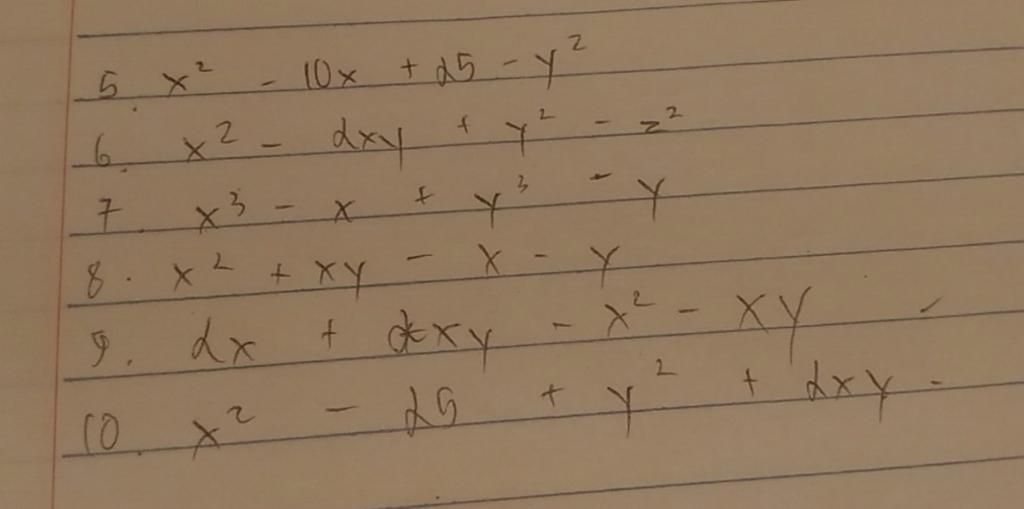 5. x² - 10x + 25 - y²
6. x² - 2xy + y² - z²
7. x³ - x + y³ - y
8. x² + xy - x - y
9. 2x + xy - x² - xy
10. x² - 25 + y² + 2xy -